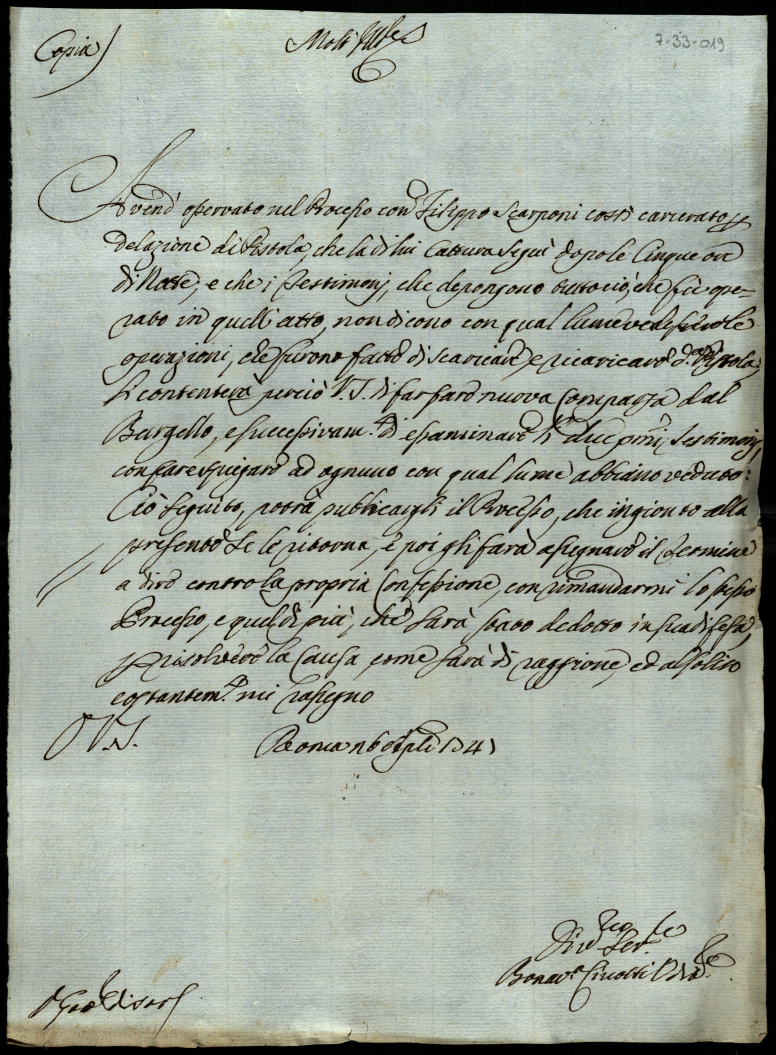 7-33-019
Copia
Molt' Ill.re
Avendo osservato nel Processo contro Filippo Scarponi costì carcerato per
delazione di Pistola, che la di lui Cattura seguì dopo le Cinque ore
di Notte, e che i Testimonj, che depongono tutto ciò, che fù ope-
rato in quell'atto, non dicono con qual lume vedessero le
operazioni, che furono fatte di scaricare, e ricaricare d.a Pistola;
Si contenterà perciò V.S. di far fare nuova Comparsa dal
Bargello, e successivam.te di esaminare li due primi Testimonj,
con fare spiegare ad ognuno con qual lume abbiano veduto:
Ciò seguito, potrà pubblicargli il Processo, che ingionto alla
presente se le ritorna, e poi gli farà assegnare il Termine
a dire contro la propria Confessione, con rimandarmi lo stesso
Processo, e quel di più, che sarà stato dedotto in sua difesa,
per risolvere la Causa, come sarà di raggione, ed al solito
costantem.te mi rassegno
D V.S. Roma 1741
Ser.re
Bonav.a